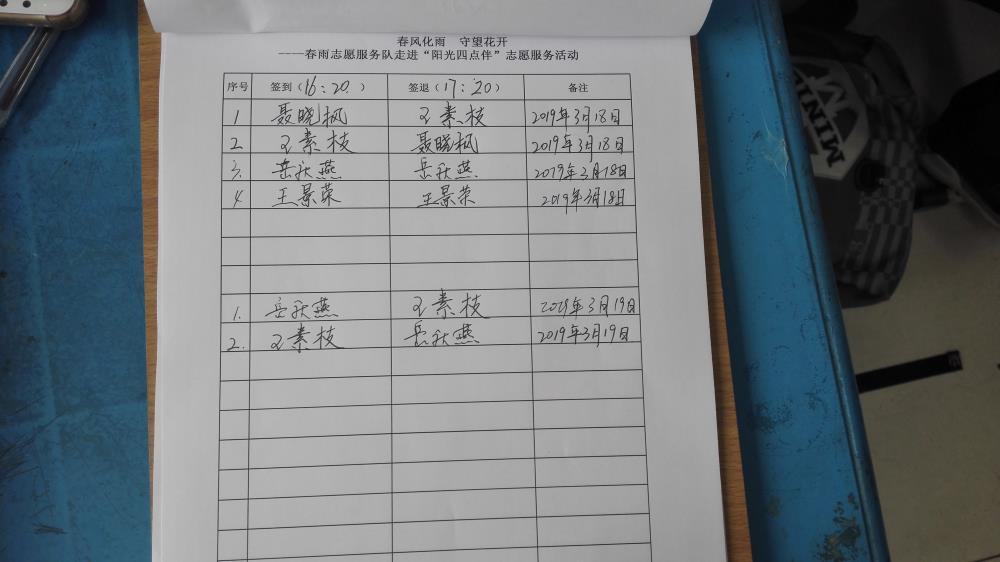 春风化雨 守望花开
----春雨志愿服务队走进“阳光四点伴”志愿服务活动
序号 签到（16：20） 签退（17：20） 备注
1 聂晓枫 王素枝 2019年3月18日
2. 王素枝 聂晓枫 2019年3月18日
3. 岳秋燕 岳秋燕 2019年3月18日
4 王景荣 王景荣 2019年3月18日
1. 岳秋燕 王素枝 2029年3月19日
2. 王素枝 岳秋燕 2019年3月19日
MINI